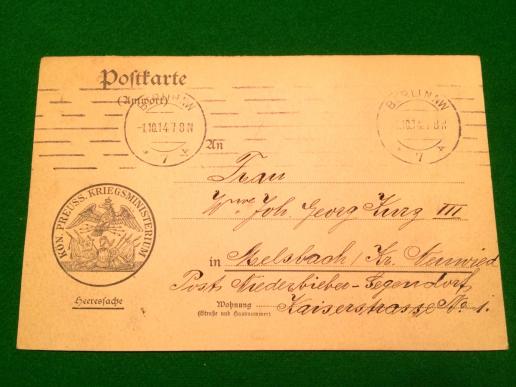 Postkarte
(Antwort)
BERLIN NW
-1.10.14.7 8 N
7
BERLIN NW
1.10.14.7 8 N
7
An
Frau
Wwe Joh. Georg Kurz III
KÖN. PREUSS. KRIEGSMINISTERIUM
in Melsbach / Kr. Neuwied
Post Niederbieber-Segendorf
Heeressache
Wohnung
Kaiserstrasse No 1.
(Straße und Hausnummer)